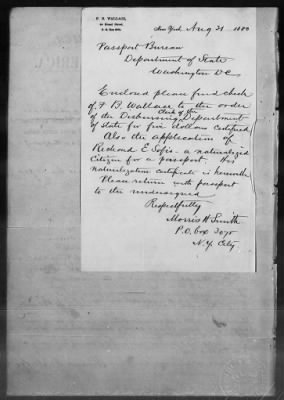 F. B. WALLACE,
New York, Aug 21 1880
Passport Bureau
Department of State
Washington D.C.
Enclosed please find check
of F. B. Wallace to the order
Clerk of the
of the Disbursing Department
of State for five dollars certified
Also the application of
Redmond E. a naturalized
citizen for a passport. His
naturalization certificate is herewith
Please return with passport
to the undersigned
Respectfully
Morris H. Smith
P.O. Box 3070
N.Y. City